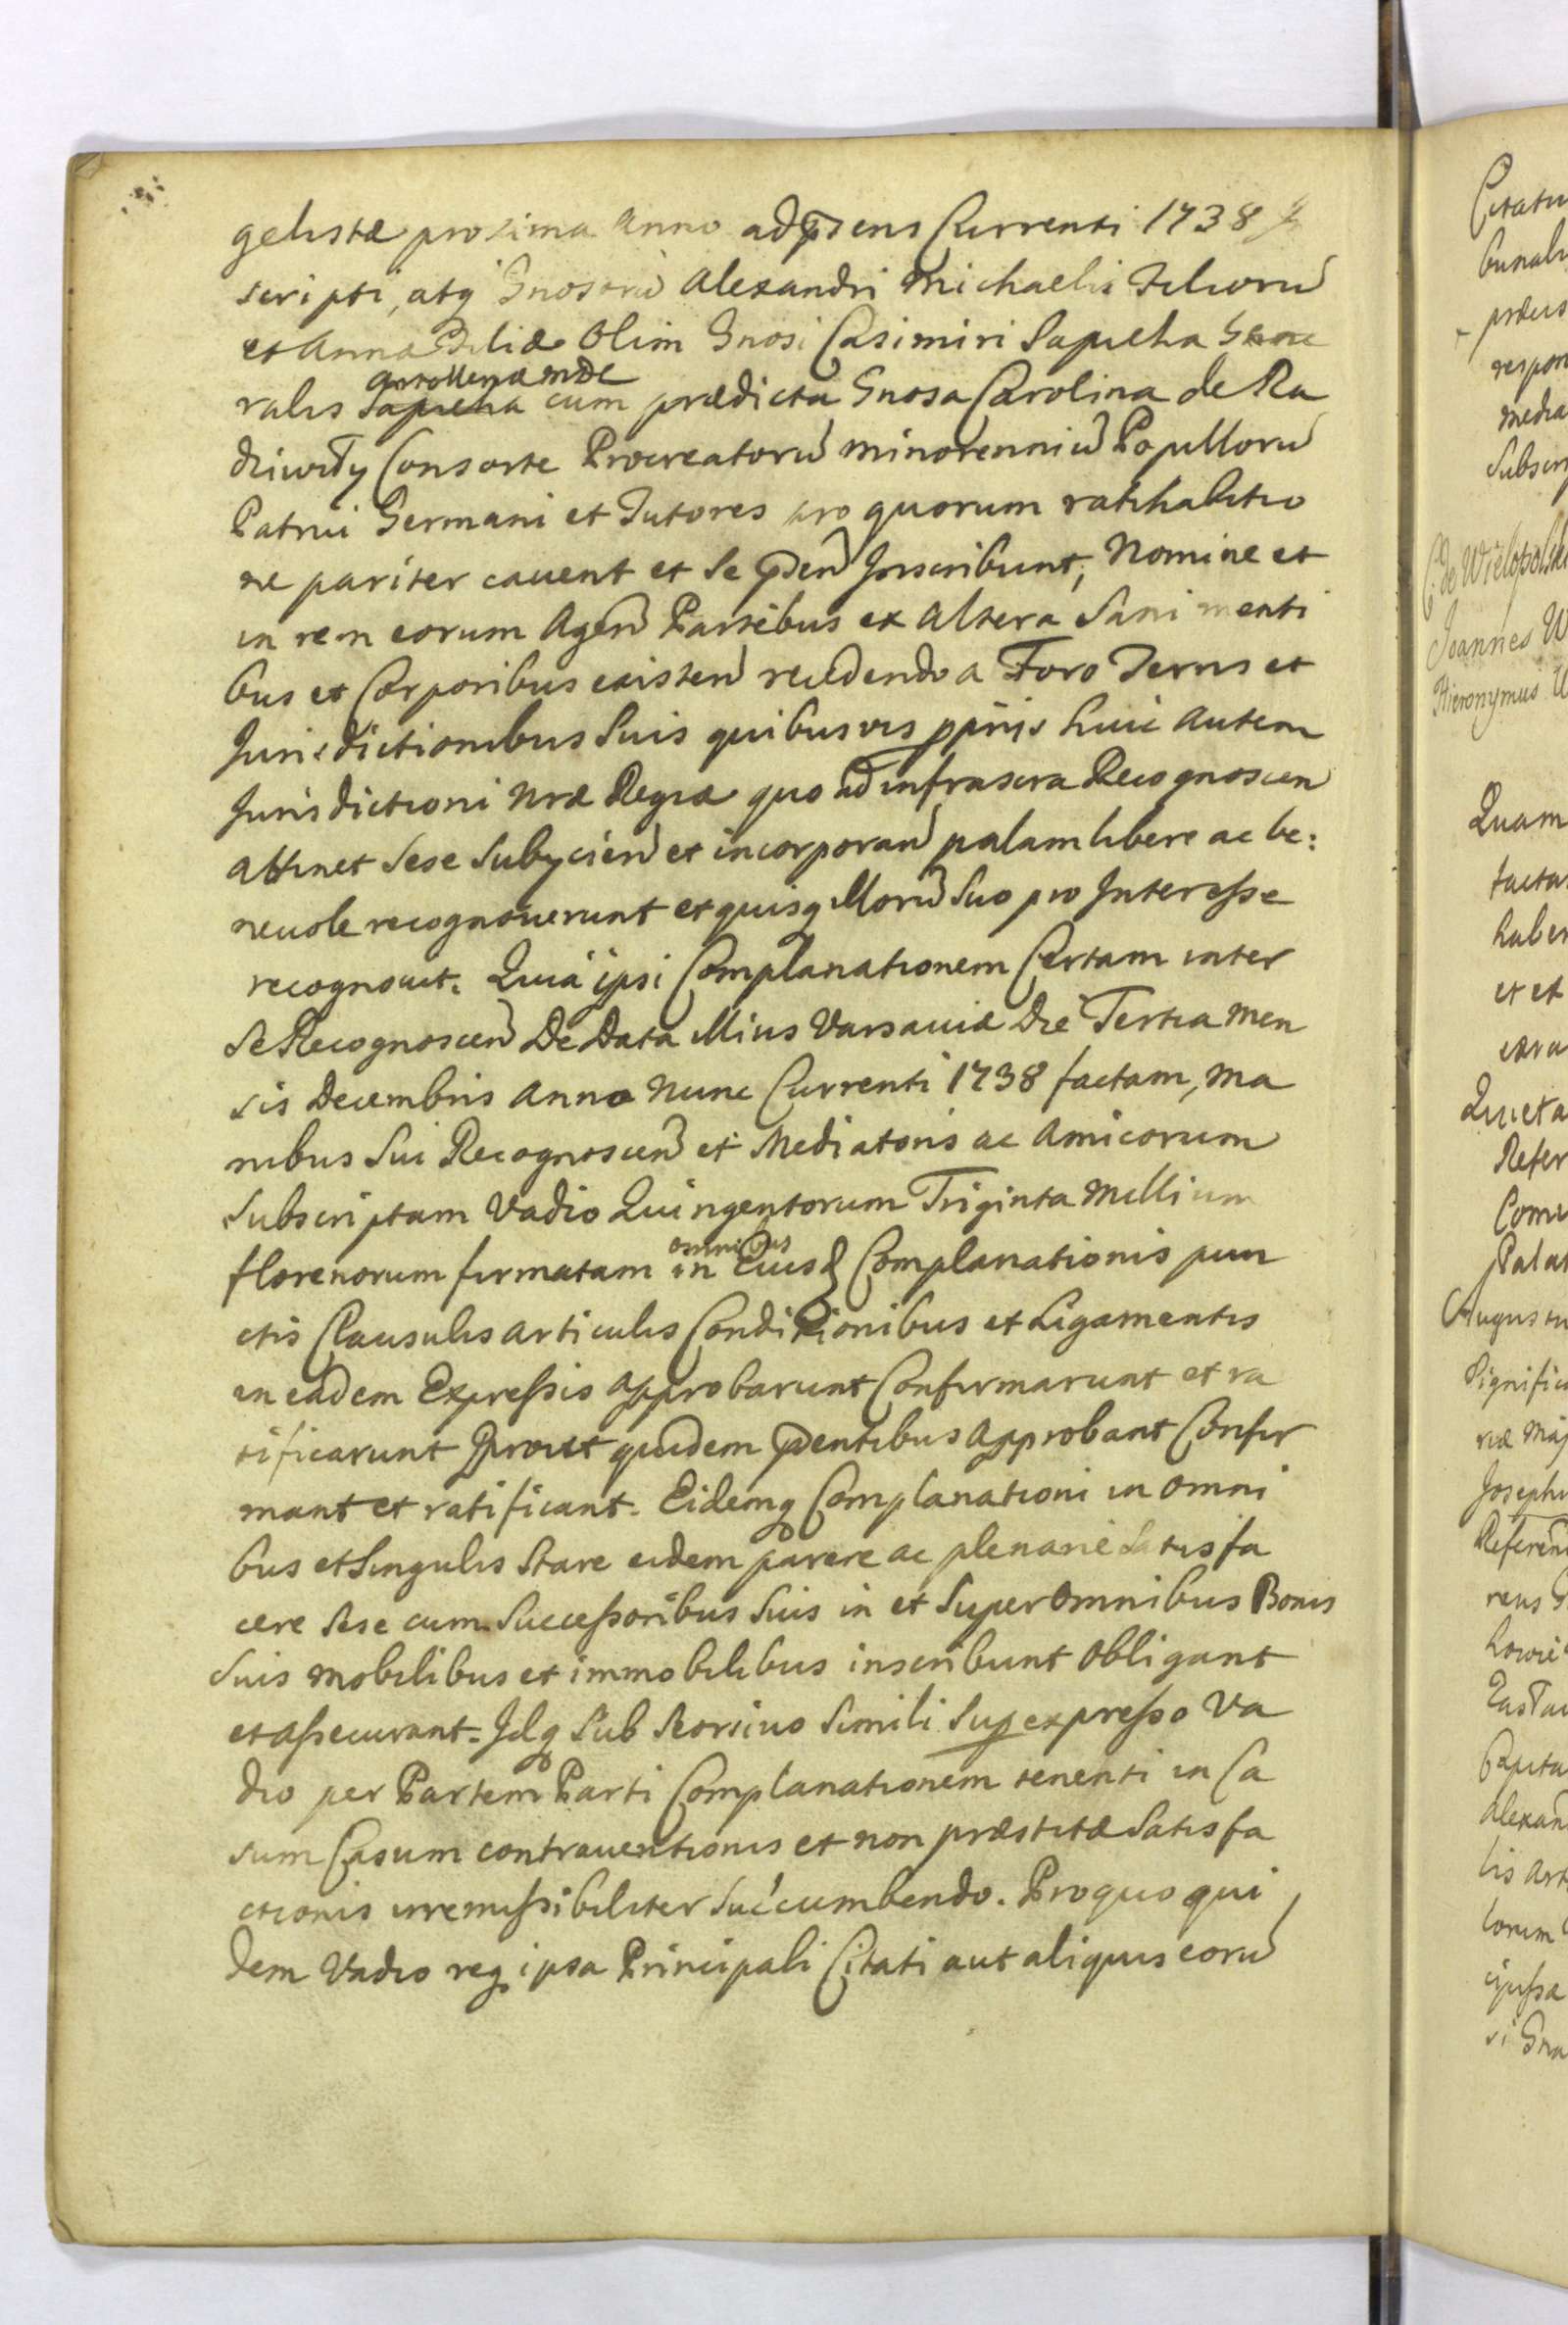 gelistæ proxima Anno adpsens Currenti 1738
scripti, atq Gnosorū Alexandri Michaelis Filiorū
et Anna Filiæ Olim Gnosi Casimiri Sapieha Gene
ralis Artolleriæ MDL
Sapieha cum prædicta Gnosa Carolina de Ra
dziwiły Consorte Procreatorū minorenniū Pupillorū
Patrui Germani et Tutores pro quorum ratihabitio
ne pariter cauent et se psen Inscribunt, Nomine et
in rem eorum Agen Partibus ex Altera Sani menti
bus et Corporibus existen recedendo a Foro Terris et
Jurisdictionibus Suis quibusvis pprijs huic Autem
Jurisdictioni Nræ Regiæ quo ad infrascra Recognoscen
attinet Sese Subycien et incorporan palam libere ac be:
neuole recognouerunt et quisq illorū Suo pro Interesse
recognoscit. Quia ipsi Complanationem Certam inter
Se Recognoscen De Data illius Varsauiæ Die Tertia Men
sis Decembris Anno Nunc Currenti 1738 factam, Ma
nibus Sui Recognoscen et Mediatoris ac Amicorum
Subscriptam Vadio Quingentorum Triginta Millium
florenorum firmatam in omnibus Eiusd Complanationis pun
ctis Clausulis articulis Conditionibus et Ligamentis
in eadem Expressis Approbarunt Confirmarunt et ra
tificarunt Prout quidem psentibus Approbant Confir
mant et ratificant. Eidemq Complanationi in omni
bus et Singulis Stare eidem parere ac plenarie Satisfa
cere Sese cum Successoribus Suis in et Super omnibus Bonis
Suis Mobilibus et immobilibus inscribunt Obligant
et assecurant. Idq Sub Seorsivo Simili Supexpresso Va
dio per Partem Parti Complanationem tenenti in Ca
sum Casum contrauentionis et non præstitæ Satisfa
ctionis irremissibiliter Succumbendo. Pro quo qui
dem Vadio req ipsa Principali Citati aut aliquis eorū
respon
media
C. de Wielopolski
Joannes W
Hieronymus
Quam
et et
Quieta
Refer
Palat